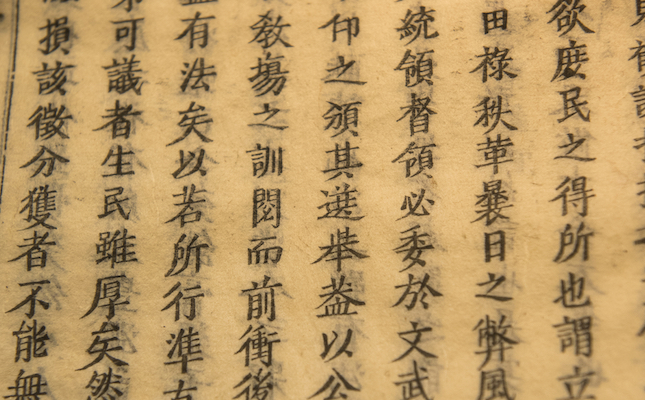 欲庶民之得所也謂立
田祿秩革曩日之弊風
統領督領必委於文武
印之頒其選舉益以公
敎塲之訓閱而前衝後
有法矣以若所行準
可議者生民雖厚矣然
損該徵分獲者不能無